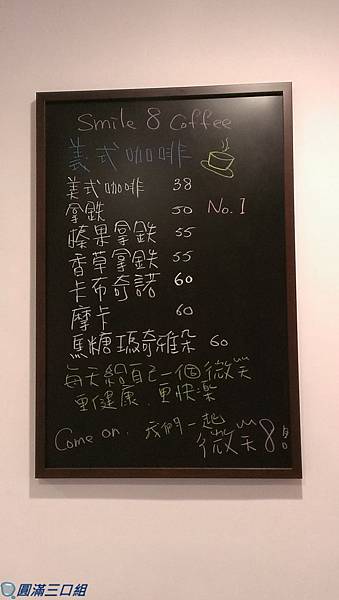 Smile 8 Coffee
美式咖啡
美式咖啡 38
拿鉄 50 No.1
榛果拿鉄 55
香草拿鉄 55
卡布奇諾 60
摩卡 60
焦糖瑪奇雅朵 60
每天給自己一個微笑
更健康.更快樂
Come on. 我們一起
微笑8!
圓滿三口組